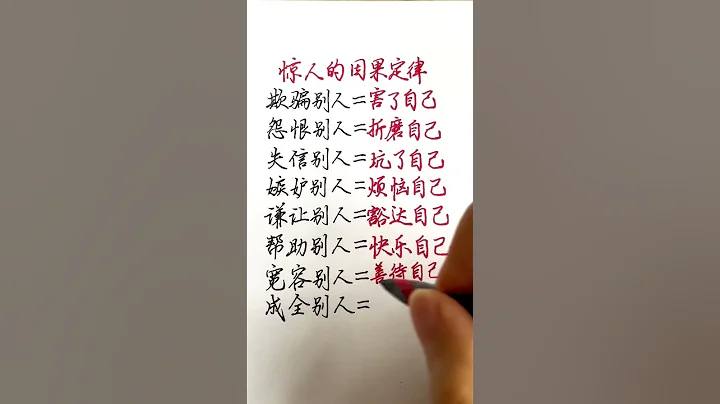 惊人的因果定律
欺骗别人=害了自己
怨恨别人=折磨自己
失信别人=坑了自己
嫉妒别人=烦恼自己
谦让别人=豁达自己
帮助别人=快乐自己
宽容别人=善待自己
成全别人=